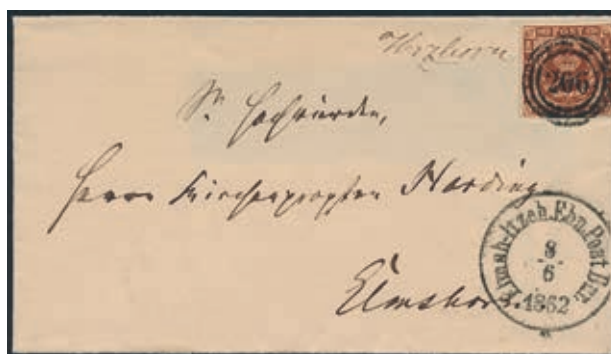 Herzhorn
266
Sr. Hochwürden,
Herrn Kirchenpropsten Harding
Elmshorn.
Elmsh-Itzeh. Ebn. Post Bur.
8
6
1862